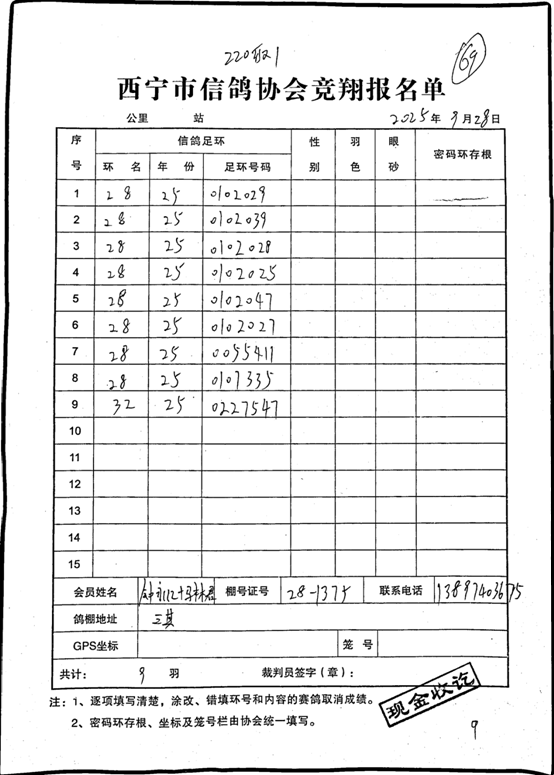 220取1
69
西宁市信鸽协会竞翔报名单
公里 站 2025年 9月28日
序号 信鸽足环 性别 羽色 眼砂 密码环存根
环 名 年 份 足环号码
1 28 25 0102029
2 28 25 0102039
3 28 25 0102028
4 28 25 0102025
5 28 25 0102047
6 28 25 0102027
7 28 25 0055411
8 28 25 0107335
9 32 25 0227547
10
11
12
13
14
15
会员姓名 棚号证号 28-1375 联系电话 13897403675
鸽棚地址 三其
GPS坐标 笼 号
共计： 9 羽 裁判员签字（章）：
注：1、逐项填写清楚，涂改、错填环号和内容的赛鸽取消成绩。
2、密码环存根、坐标及笼号栏由协会统一填写。
现金收讫
9